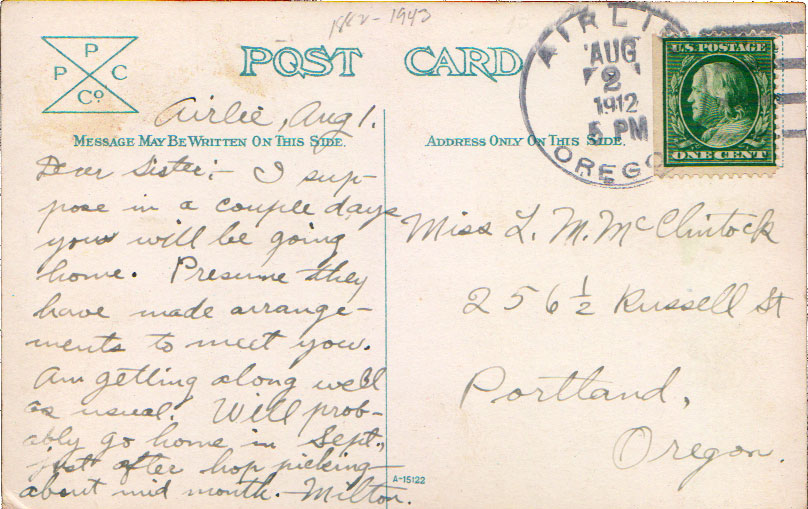 1882-1943
P
P C
Co
POST CARD
AIRLIE
AUG
2
1912
5 PM
OREGO
U.S. POSTAGE
ONE CENT
Airlie, Aug 1.
MESSAGE MAY BE WRITTEN ON THIS SIDE.
Dear Sister:- I sup-
pose in a couple days
you will be going
home. Presume they
have made arrange-
ments to meet you.
Am getting along well
as usual. Will prob-
ably go home in Sept.,
just after hop picking-
about mid month. -Milton.
ADDRESS ONLY ON THIS SIDE.
Miss L. M. McClintock
256 1/2 Russell St
Portland,
Oregon.
A-15122